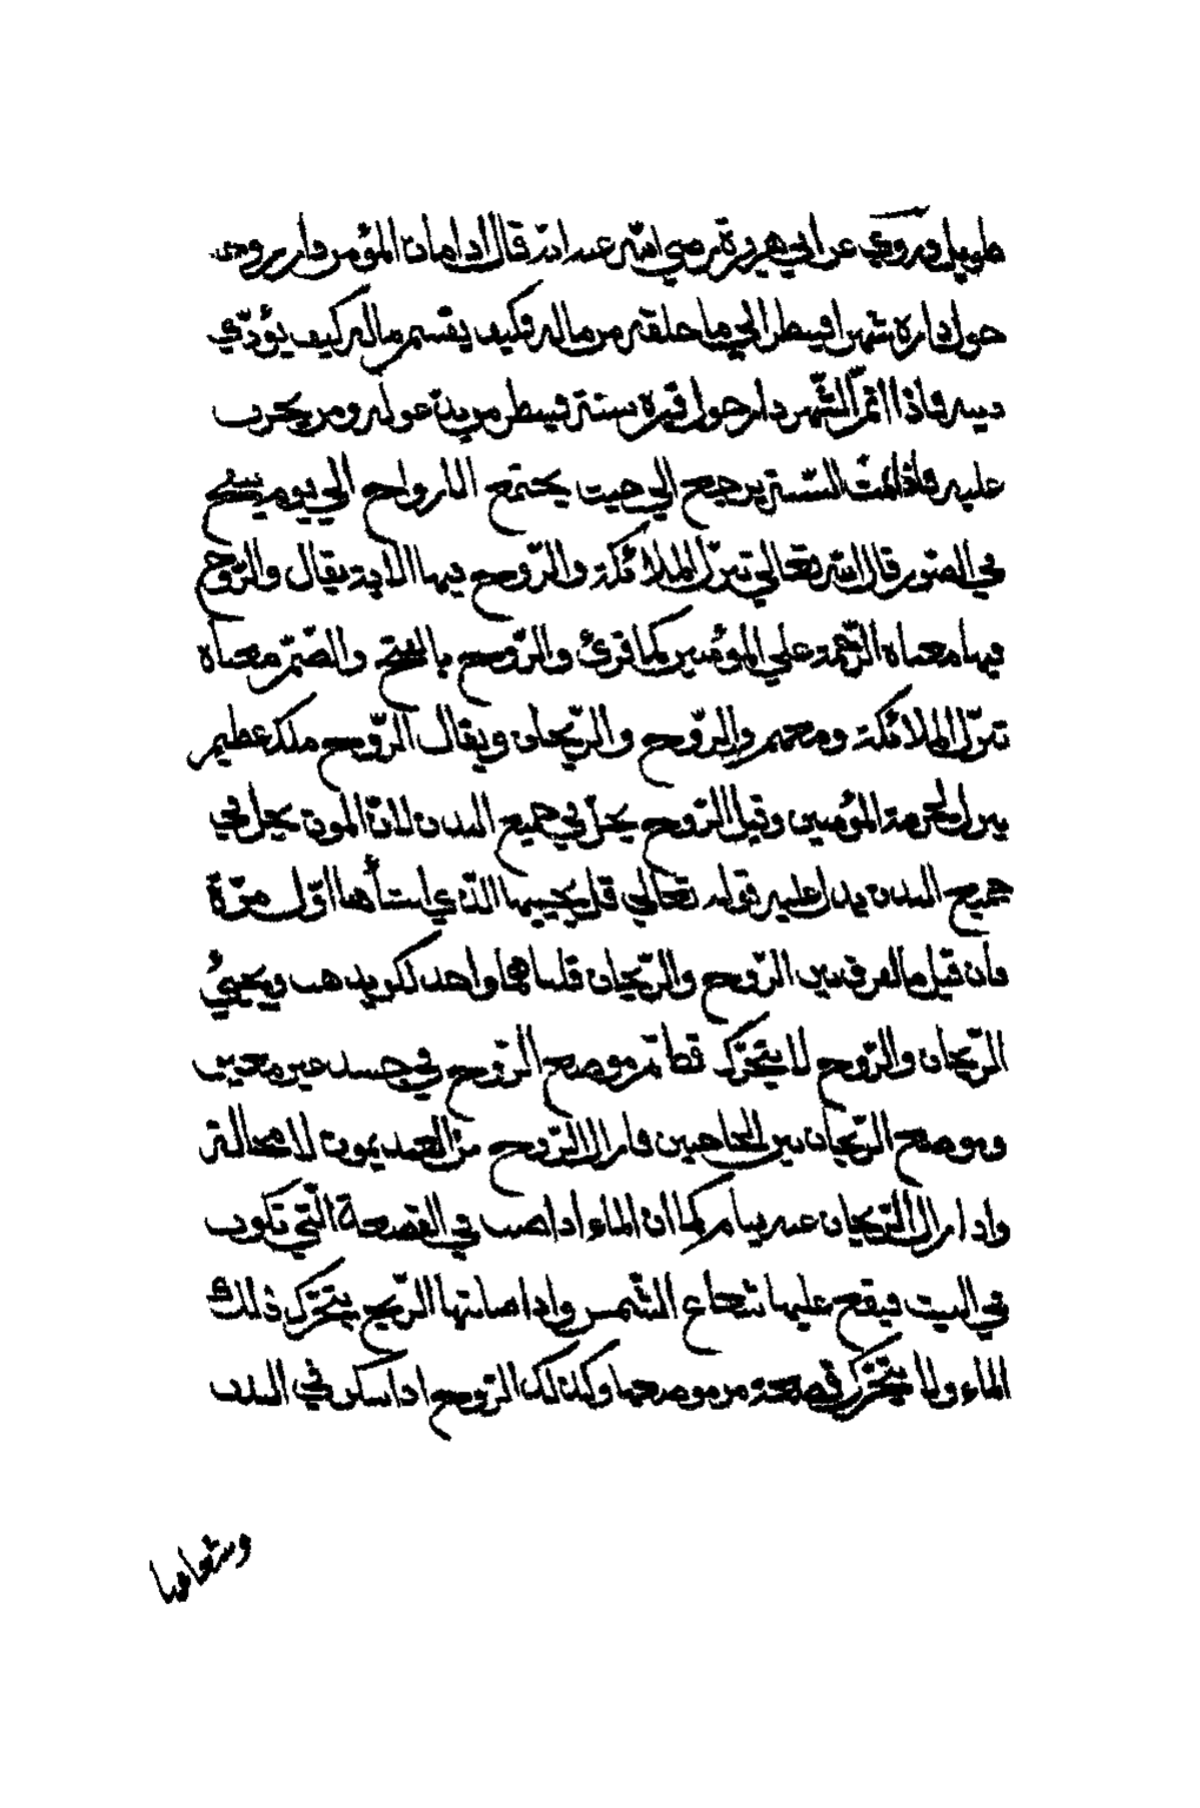 طويل وروي عن ابي هريرة رضي الله عنه انه قال اذا مات المؤمن دار روحه
حول داره شهرا فينظر الي ما خلفه من ماله فكيف يقسم ماله كيف يؤدي
دينه فاذا اتمّ الشّهر دار حول قبره سنة فينظر من يدعو له ومن يحزن
عليه فاذا تمت السّنة يرجع الي حيث يجتمع الارواح الي يوم ينفخ
في الصّور قال الله تعالي تنزّل الملائكة والرّوح فيها الاية يقال والرّوح
فيها معناه الرّحمة علي المؤمنين كما قرئ والرّوح بالفتح والضّمّ معناه
تنزّل الملائكة ومعهم والرّوح والرّيحان ويقال الرّوح ملك عظيم
ينزل لحرمة المؤمنين وقيل الرّوح يحلّ في جميع البدن لانّ الموت يحل في
جميع البدن يدل عليه قوله تعالي قل يحييها الّذي انشأها اوّل مرّة
فان قيل ما الفرق بين الرّوح والرّيحان قلنا هما واحد لكن يذهب ويجيئ
الرّيحان والرّوح لا يتحرّك قط ثم موضع الرّوح في جسد غير معين
وموضع الرّيحان بين الحاجبين فاذا زال الرّوح من العبد يموت لا محالة
واذا زال الرّيحان عنه ينام كما ان الماء اذا صب في القصعة الّتي تكون
في البيت فيقع عليها شعاع الشّمس واذا اصابتها الرّيح يتحرّك ذلك
الماء ولا يتحرّك قصعة من موضعها وكذلك الرّوح اذا سكن في البدن
وشعاعها